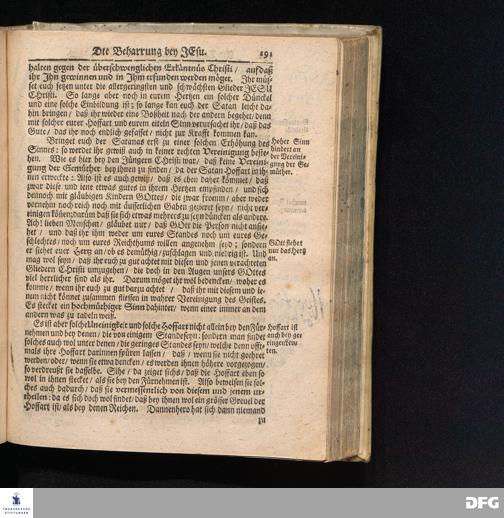 Die Beharrung bey JEsu. 191
halten gegen der überschwenglichen Erkäntnüs Christi / auf daß
ihr Ihn gewinnen und in Ihm erfunden werden möget. Ihr müs-
set euch setzen unter die allergeringsten und schwächsten Glieder JESU
Christi. So lange aber noch in eurem Hertzen ein solcher Dünckel
und eine solche Einbildung ist; so lange kan euch der Satan leicht da-
hin bringen / daß ihr wieder eine Boßheit nach der andern begehet / denn
mit solcher eurer Hoffart und eurem eiteln Sinn verursachet ihr / daß das
Gute / das ihr noch endlich gefasset / nicht zur Krafft kommen kan.
Bringet euch der Satanas erst zu einer solchen Erhöhung des
Sinnes: so werdet ihr gewiß auch in keiner rechten Vereinigung beste-
hen. Wie es hier bey den Jüngern Christi war / daß keine Vereini-
gung der Gemüther bey ihnen zu finden / da der Satan Hoffart in ih-
nen erweckte: Also ist es auch gewiß / daß es eben daher kömmet / daß
zwar diese und jene etwas gutes in ihrem Hertzen empfinden / und sich
dennoch mit gläubigen Kindern GOttes / die zwar fromm / aber weder
vornehm noch reich noch mit äusserlichen Gaben gezieret seyn / nicht ver-
einigen können; darum daß sie sich etwas mehrers zu seyn düncken als andere.
Ach! lieben Menschen / gläubet nur / daß GOtt die Person nicht ansie-
het / und daß ihr ihm weder um eures Standes noch um eures Ge-
schlechtes / noch um eures Reichthums willen angenehm seyd; sondern
er siehet euer Hertz an / ob es demüthig / zuschlagen und niedrig ist. Und
mag wol seyn / daß ihr euch zu gut achtet mit diesen und jenen verachteten
Gliedern Christi umzugehen / die doch in den Augen unsers GOttes
viel herrlicher sind als ihr. Darum möget ihr wol bedencken / woher es
komme / wenn ihr euch zu gut darzu achtet / daß ihr mit diesem und je-
nem nicht könnet zusammen fliessen in wahrer Vereinigung des Geistes.
Es stecket ein hochmüthiger Sinn dahinter / wenn einer immer an dem
andern was zu tadeln weiß.
Es ist aber solche Uneinigkeit und solche Hoffart nicht allein bey den Für-
nehmen und bey denen / die von einigem Stande seyn: sondern man findet
solches auch wol unter denen / die geringes Standes seyn / welche denn offt-
mals ihre Hoffart darinnen spüren lassen / daß / wenn sie nicht geehret
werden / oder / wenn sie etwa dencken / es werden ihnen höhere vorgezogen /
so verdreußt sie dasselbe. Sihe / da zeiget sichs / daß die Hoffart eben so
wol in ihnen stecket / als sie bey den Fürnehmen ist. Also beweisen sie sol-
ches auch dadurch / daß sie vermessentlich von diesem und jenem ur-
theilen: da es sich doch wol findet / daß bey ihnen wol ein grösser Greuel der
Hoffart ist / als bey denen Reichen. Dannenhero hat sich dann niemand
zu
Hoher Sinn
hindert an
der Vereini-
gung der Ge-
müther.
GOtt siehet
nur das Hertz
an.
Hoffart ist
auch bey ge-
ringen Leu-
ten.
FRANCKESCHE
STIFTUNGEN
DFG